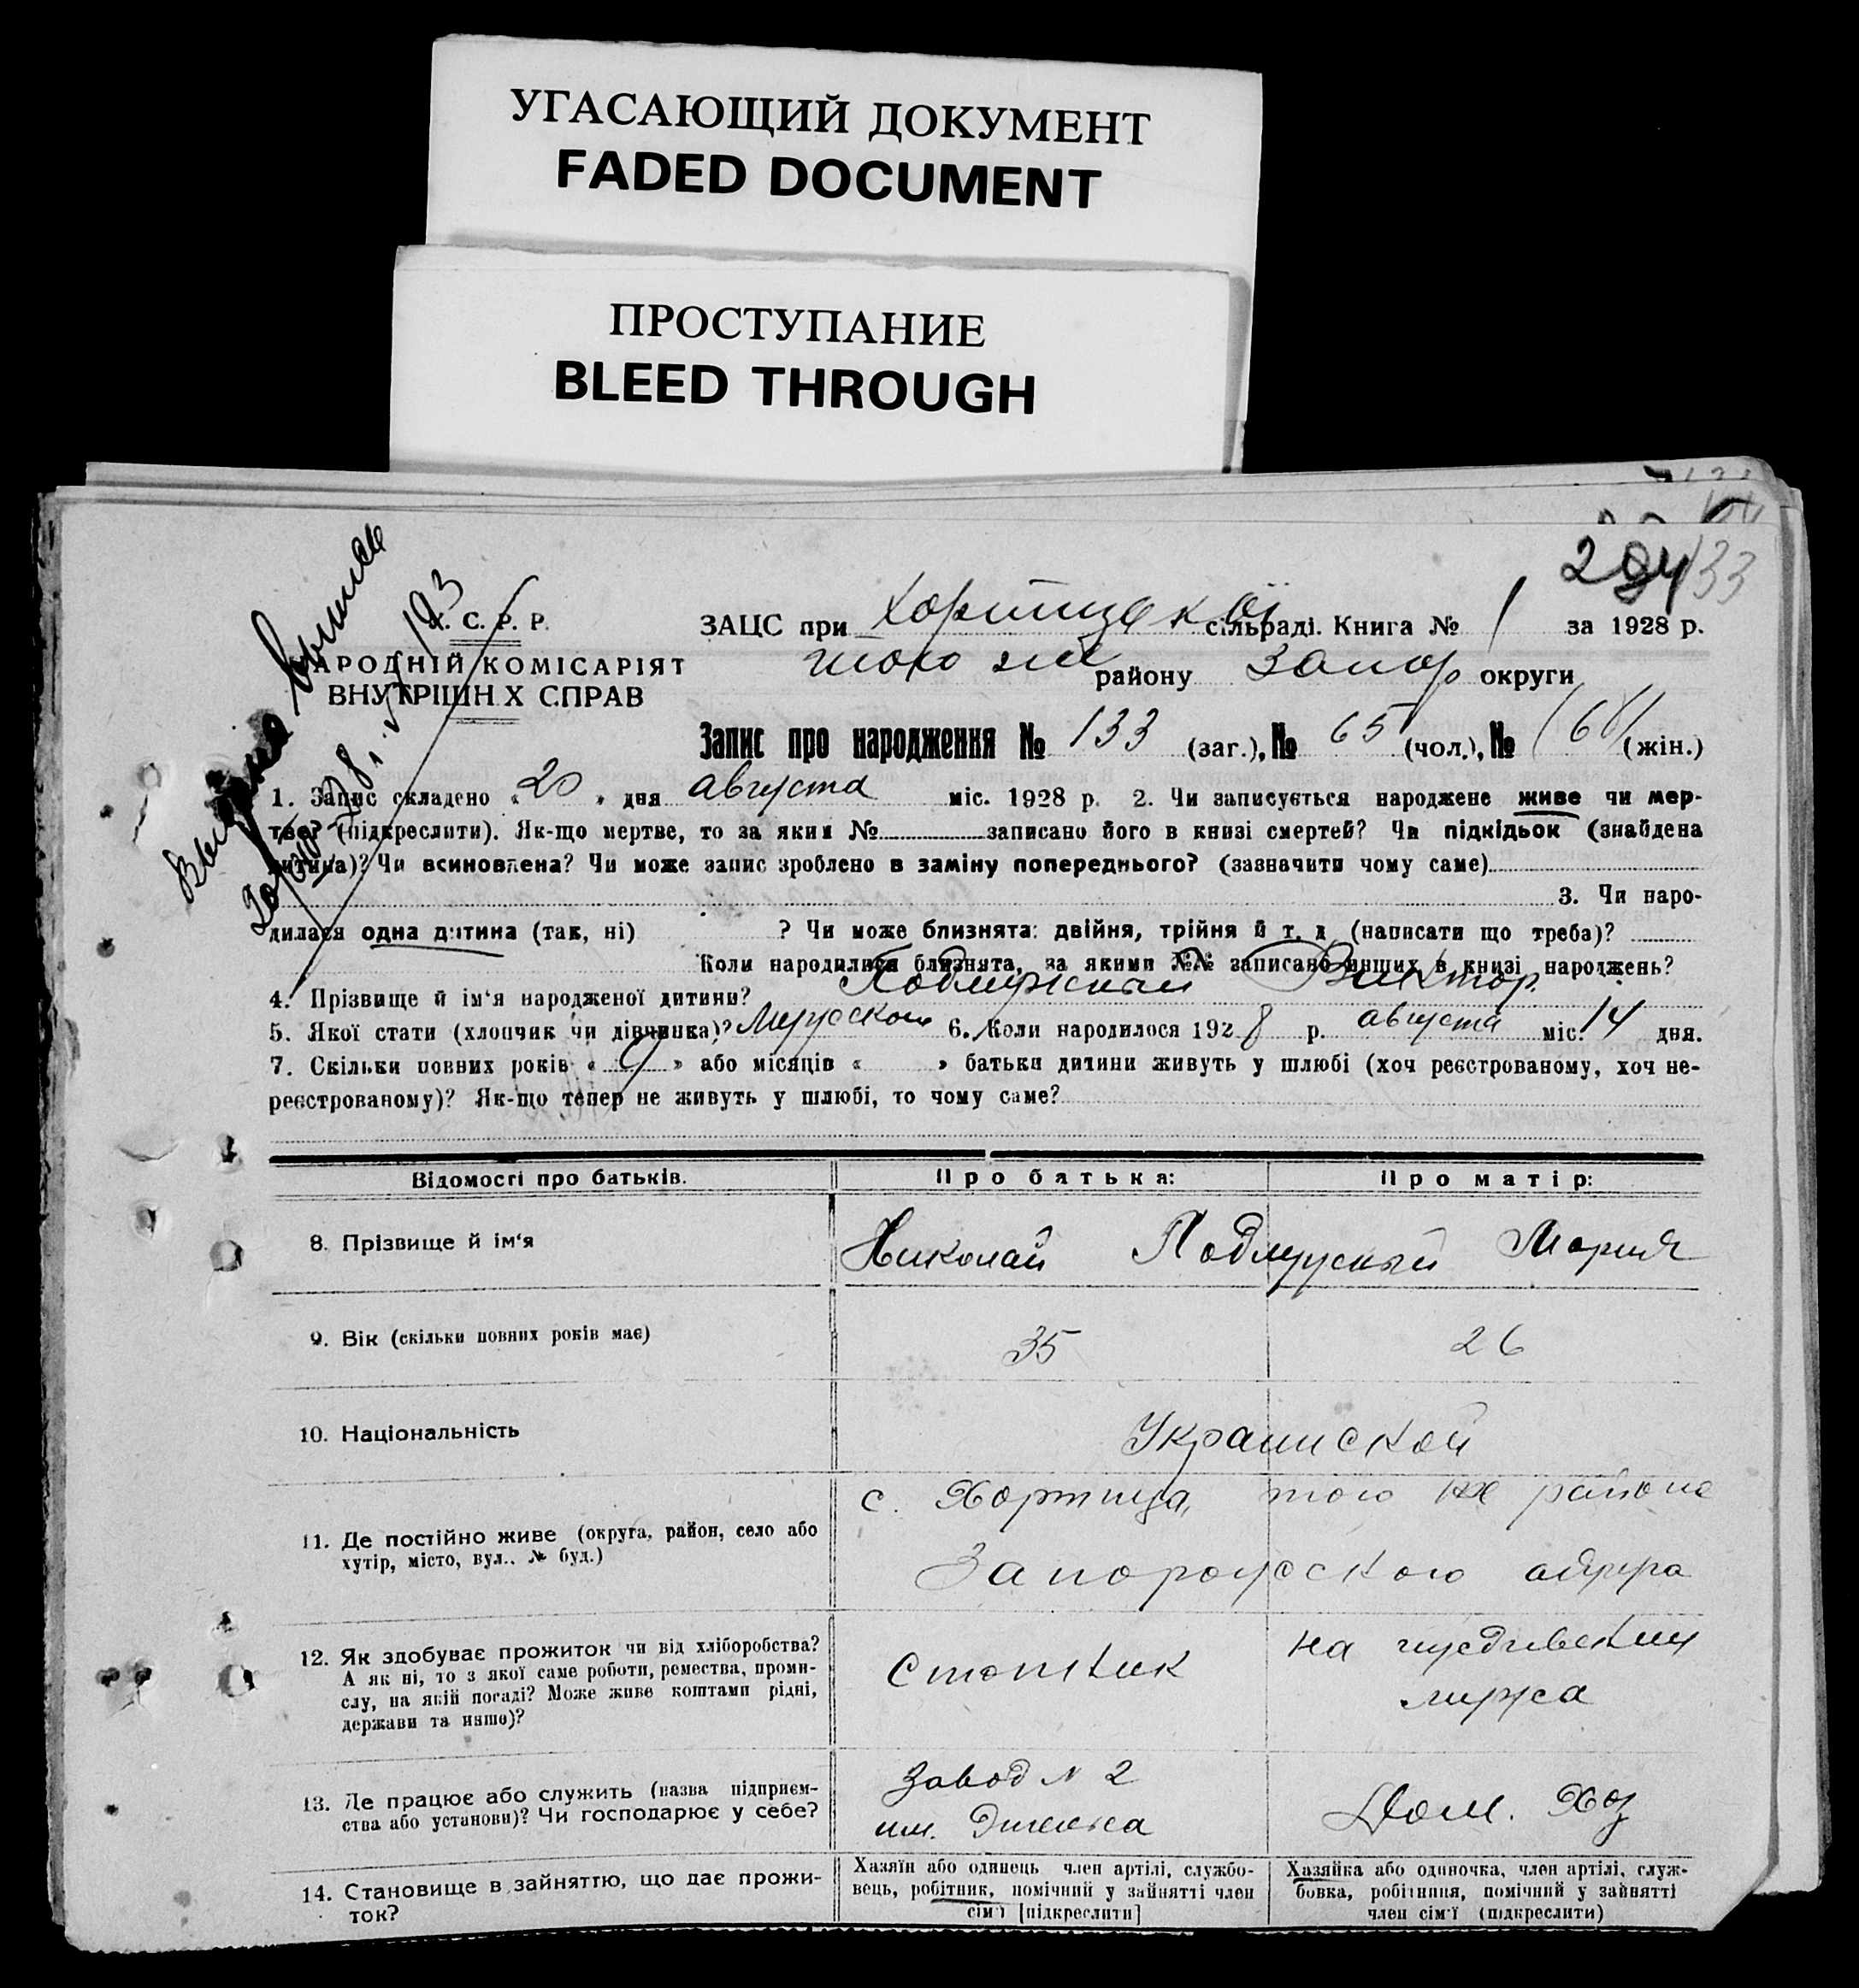 УГАСАЮЩИЙ ДОКУМЕНТ
FADED DOCUMENT
ПРОСТУПАНИЕ
BLEED THROUGH
133
С. Р. Р.
НАРОДНІЙ КОМІСАРІЯТ
ВНУТРІШНІХ СПРАВ
ЗАЦС при Хортицской сільраді. Книга № 1 за 1928 р.
того же району Запор округи
Запис про народження № 133 (заг.), № 65 (чол.), № 68 (жін.)
1. Запис складено « 20 » дня августа міс. 1928 р. 2. Чи записується народжене живе чи мер-
тве? (підкреслити). Як-що мертве, то за яким № записано його в книзі смертей? Чи підкідьок (знайдена
дитина)? Чи всиновлена? Чи може запис зроблено в заміну попереднього? (зазначити чому саме)
3. Чи наро-
дилася одна дитина (так, ні) ? Чи може близнята: двійня, трійня й т. д. (написати що треба)?
Коли народилися близнята, за якими №№ записано инших в книзі народжень?
4. Прізвище й ім‘я народженої дитини? Виктор
5. Якої стати (хлопчик чи дівчинка)? Мужской 6. Коли народилося 1928 р. августа міс. 14 дня.
7. Скільки повних років « 9 » або місяців « » батьки дитини живуть у шлюбі (хоч реєстрованому, хоч не-
реєстрованому)? Як-що тепер не живуть у шлюбі, то чому саме?
Відомості про батьків. Про батька: Про матір:
8. Прізвище й ім‘я Николай Мария
9. Вік (скільки повних років має) 35 26
10. Національність Украинской
11. Де постійно живе (округа, район, село або
хутір, місто, вул., № буд.)
с. Хортица, того же района
Запорожского округа
12. Як здобуває прожиток чи від хліборобства?
А як ні, то з якої саме роботи, ремества, проми-
слу, на якій посаді? Може живе коштами рідні,
держави та инше)?
на иждивении
мужа
13. Де працює або служить (назва підприєм-
ства або установи)? Чи господарює у себе?
Завод N 2
им. Энгельса
Дом. Хоз
14. Становище в зайняттю, що дає прожи-
ток?
Хазяїн або одинець член артілі, службо-
вець, робітник, помічний у зайнятті член
сім‘ї [підкреслити]
Хазяйка або одиночка, член артілі, служ-
бовка, робітниця, помічний у зайнятті
член сім‘ї (підкреслити)